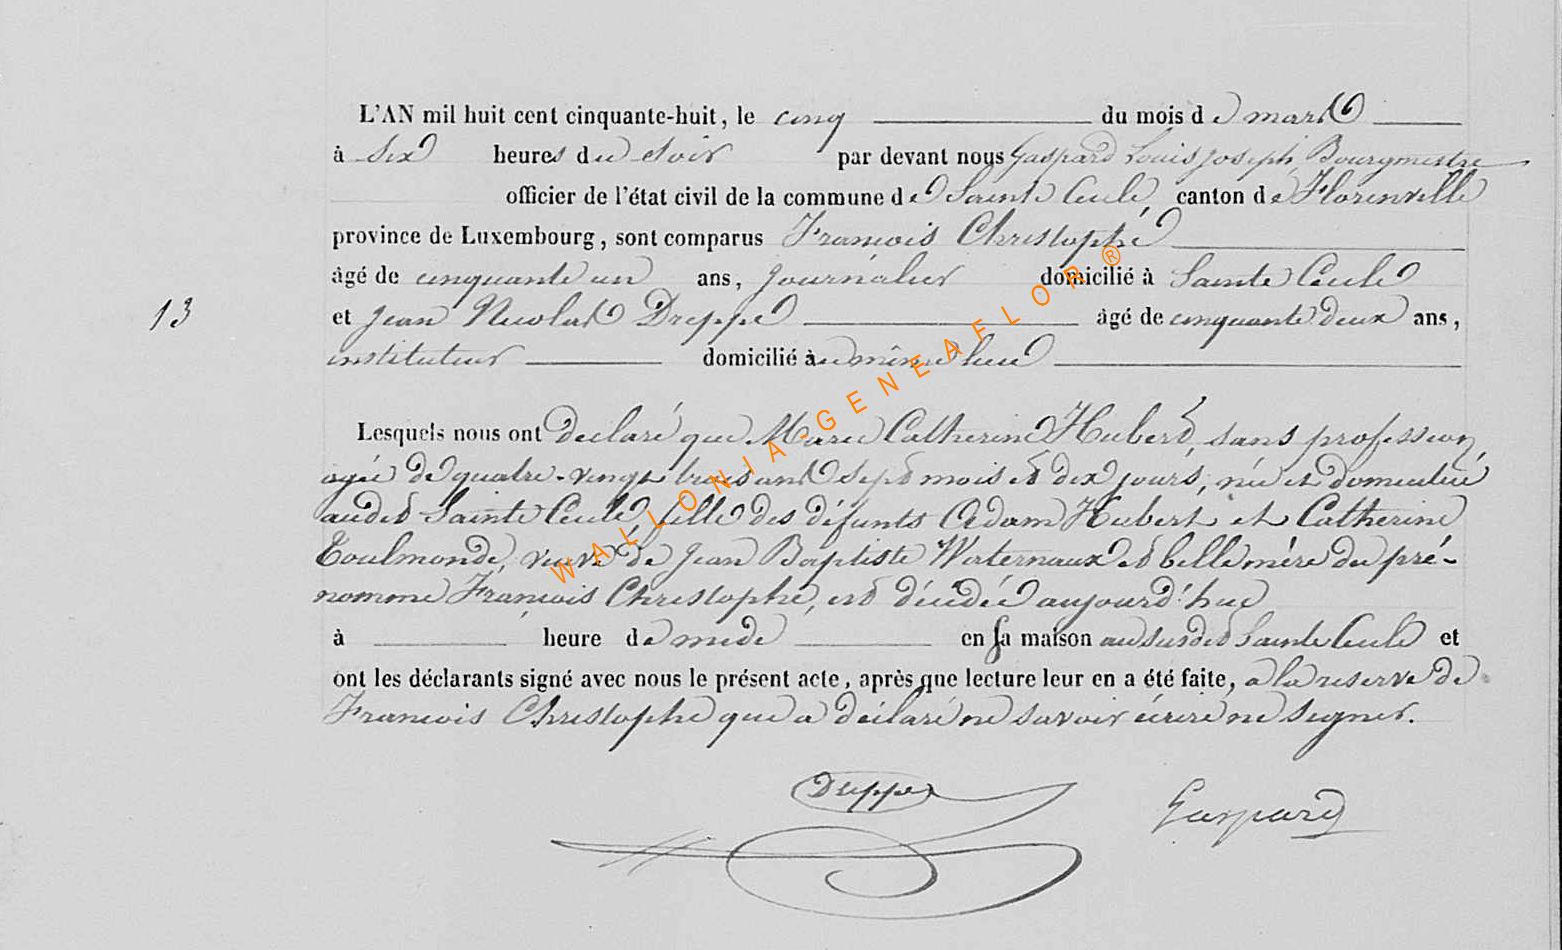 L'AN mil huit cent cinquante-huit, le cinq du mois de mars
à six heures du soir par devant nous Gaspard Louis Joseph, Bourgmestre
officier de l'état civil de la commune de Sainte Cecile, canton de Florenville
province de Luxembourg, sont comparus François Christophe
âgé de cinquante un ans, journalier domicilié à Sainte Cecile
13
et Jean Nicolas Dreppe âgé de cinquante deux ans,
instituteur domicilié au même lieu
Lesquels nous ont declaré que Marie Catherine Hubert, sans profession
agée de quatre-vingt trois ans sept mois et dix jours, née et domiciliée
audit Sainte Cecile, fille des défunts Adam Hubert et Catherine
Toulmonde, veuve de Jean Baptiste Waternaux et belle mère du pré-
nommé François Christophe, est décédée aujourd'hui
à heure de midi en sa maison au susdit Sainte Cecile et
ont les déclarants signé avec nous le présent acte, après que lecture leur en a été faite, a la reserve de
François Christophe que a déclaré ne savoir écrire ne signer.
Dreppe Gaspard
WALLONIA-GENEAFLOR®